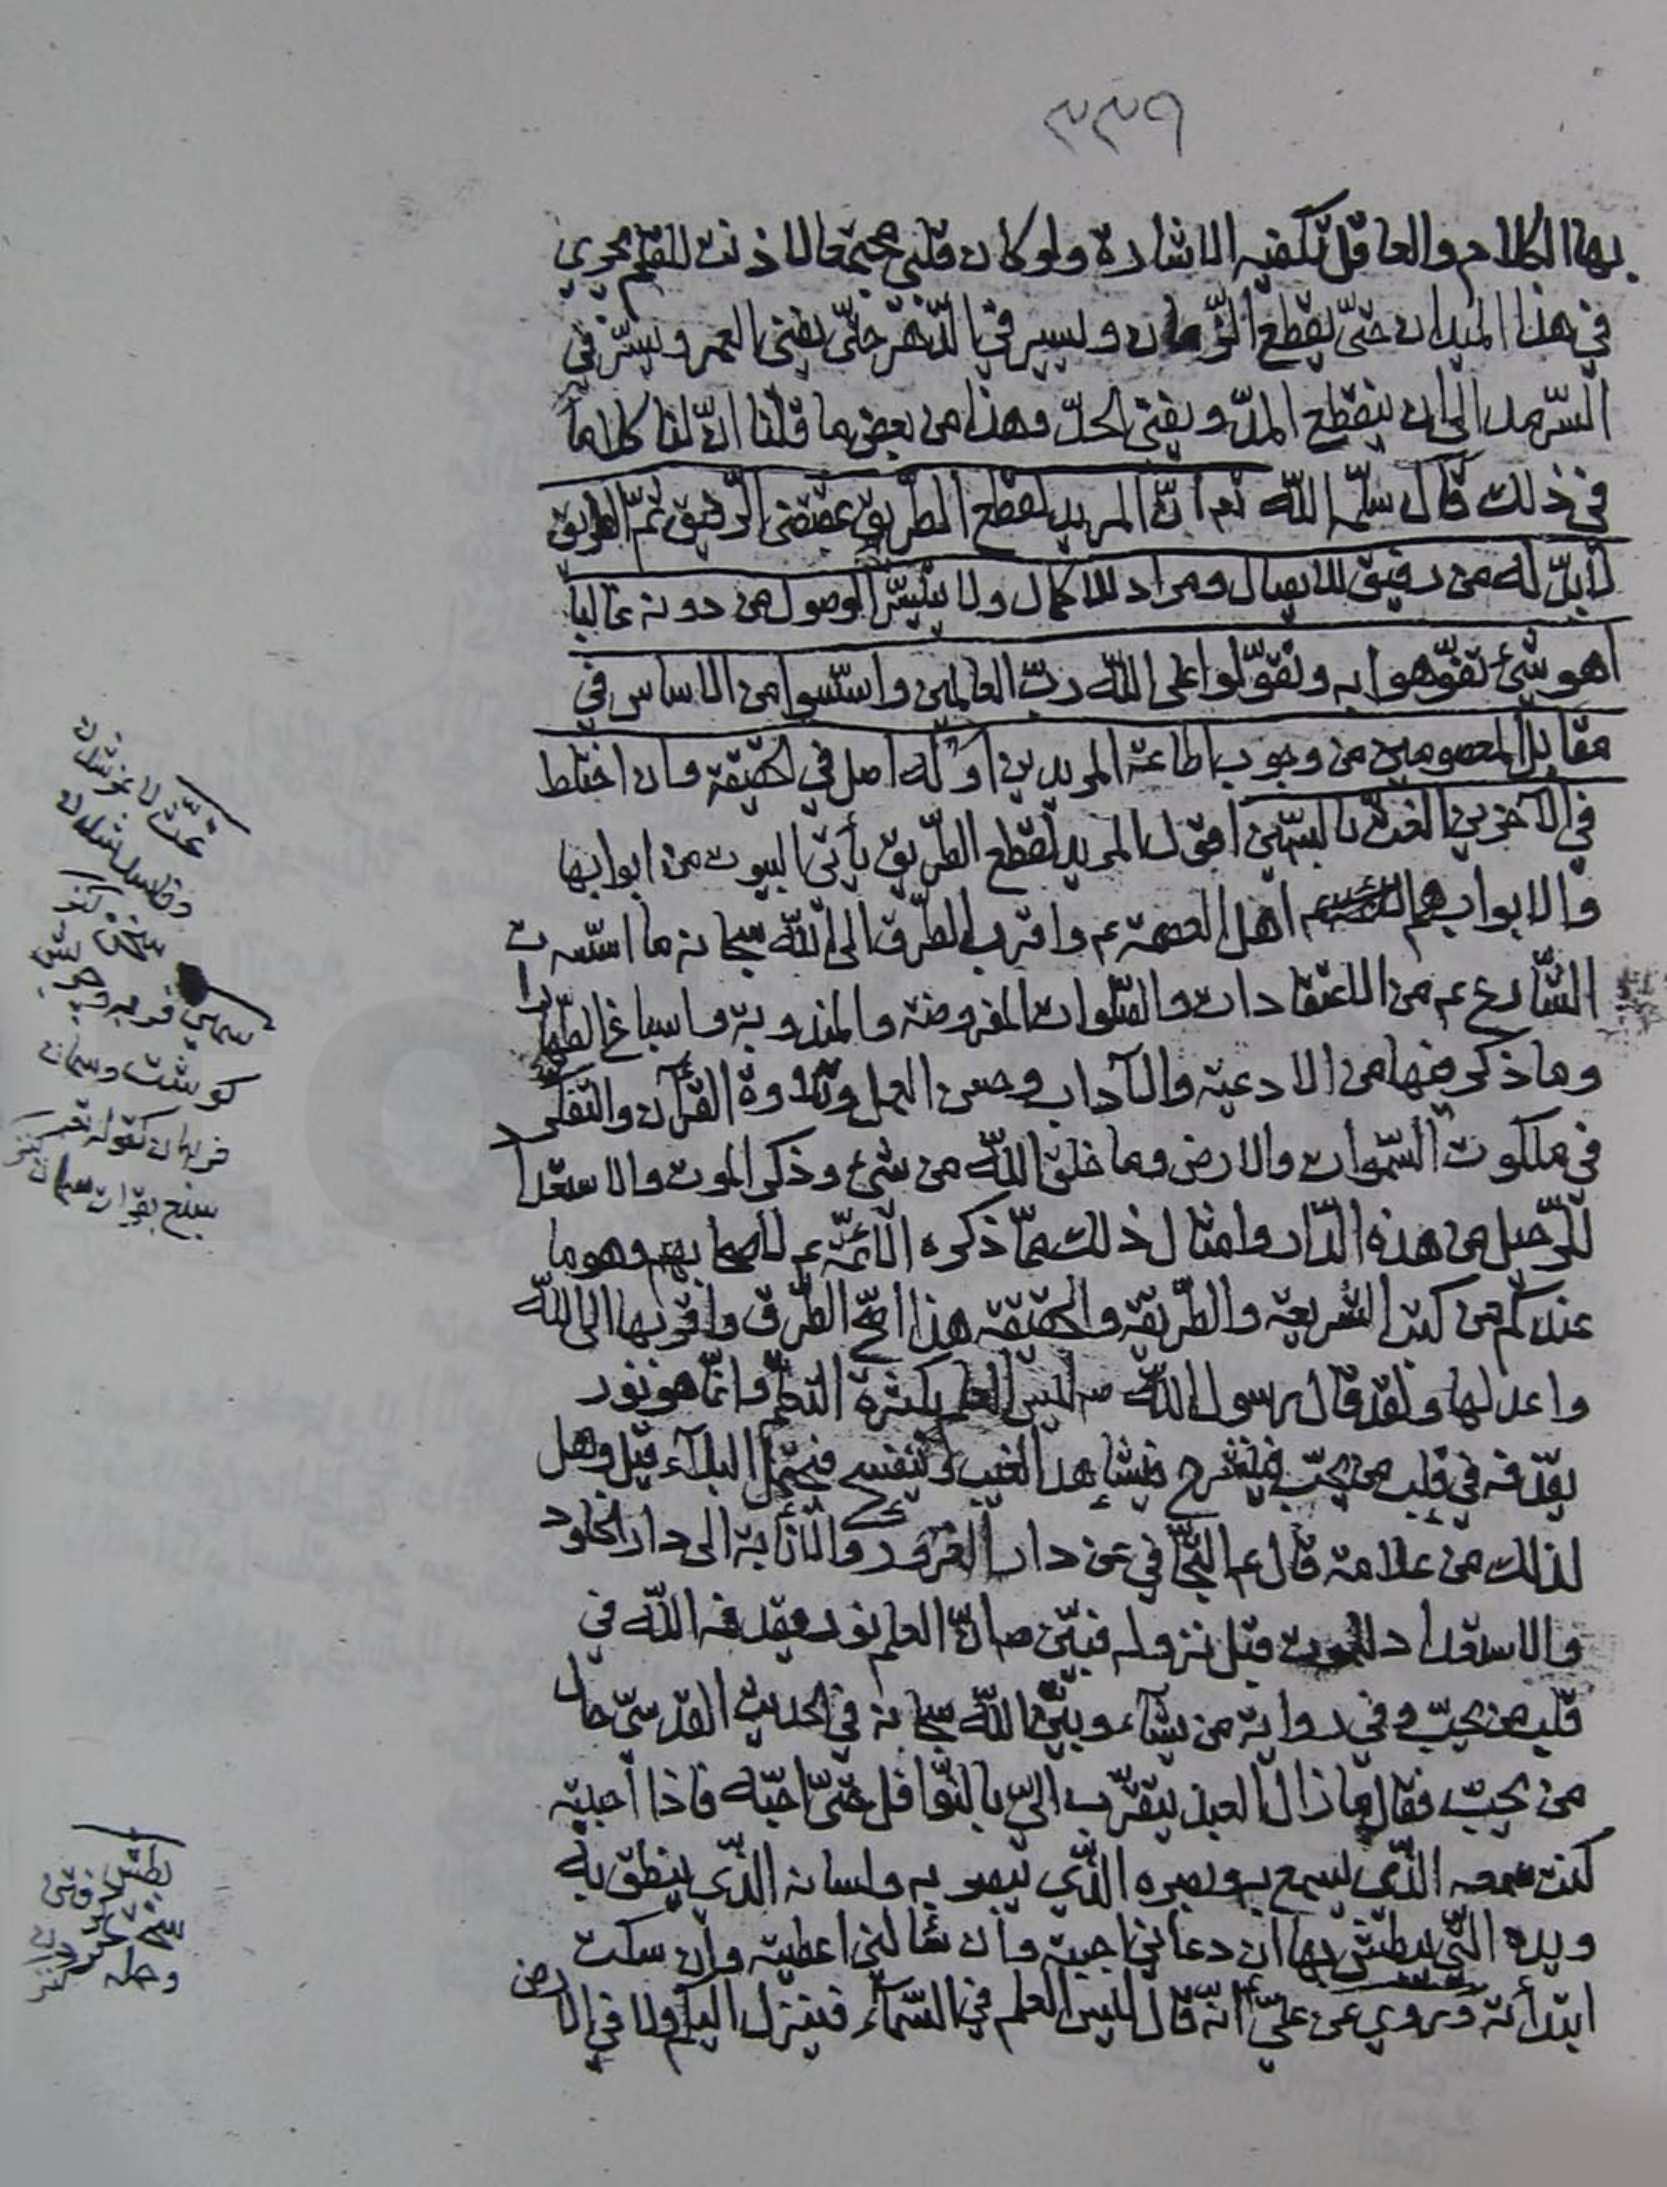 ٣٣٩
بها الكلام والعاقل تكفيه الاشارة ولو كان قلبي مجتمعا لاذنت للقلم يجري
في هذا الميدان حتّى يقطع الزّمان ويسير في الدّهر حتّى يفنى العمر ويسرّ في
السّرمد الى ان ينقطع المدّ ويفنى الحدّ وهذا من بعض ما قلنا انّ لنا كلاما
في ذلك قال سلّمه اللّه نعم انّ المريد لقطع الطّريق بمقتضى الرّفيق ثمّ الطريق
لا بدّ له من رفيق للايصال ومراد للاكمال ولا يتيسّر الوصول من دونه غالبا
اهو شئ تفوّهوا به وتقوّلوا على اللّه ربّ العالمين واسّسوا من الاساس في
مقابل المعصومين من وجوب اطاعة المريدين او له اصل في الحقيقة وان اختلط
في الآخرين الغثّ بالسّمين اقول المريد لقطع الطّريق يأتى البيوت من ابوابها
والابواب هم اهل العصمة عم واقرب الطّرق الى اللّه سبحانه ما اسّست
الشّارع عم من الاعتقادات والصّلوات المفروضة والمندوبة واسباغ الطّهارا
وما ذكر فيها من الادعية والآداب وحسن العمل وتلاوة القرآن والتفكّر
في ملكوت السّموات والارض وما خلق اللّه من شئ وذكر الموت والاستعداد
للرّحيل من هذه الدّار وامثال ذلك ممّا ذكره الائمّة عم لاصحابهم وهو ما
عندكم من كتب الشريعة والطّريقة والحقيقة هذا اصحّ الطّرق واقربها الى اللّه
واعدلها ولقد قال رسول اللّه ص ليس العلم بكثرة التعلّم وانّما هو نور
يقذفه في قلب من يحبّ فينشرح فيشاهد الغيب وينفسح فيحتمل البلاء قيل وهل
لذلك من علامة قال عم التجافي عن دار الغرور والانابة الى دار الخلود
والاستعداد للموت قبل نزوله فبيّن ص انّ العلم نور يقذفه اللّه في
قلب من يحبّ وفي رواية من يشاء وبيّن اللّه سبحانه في الحديث القدسيّ حال
من يحبّ فقال ما زال العبد يتقرّب اليّ بالنّوافل حتّى احبّه فاذا احببته
كنت سمعه الّذي يسمع به وبصره الّذي يبصر به ولسانه الّذي ينطق به
ويده الّتي يبطش بها ان دعاني اجبته وان سألني اعطيته وان سكت
ابتدأته وروي عن عليّ انّه قال ليس العلم في السّماء فينزل اليكم ولا في الارض